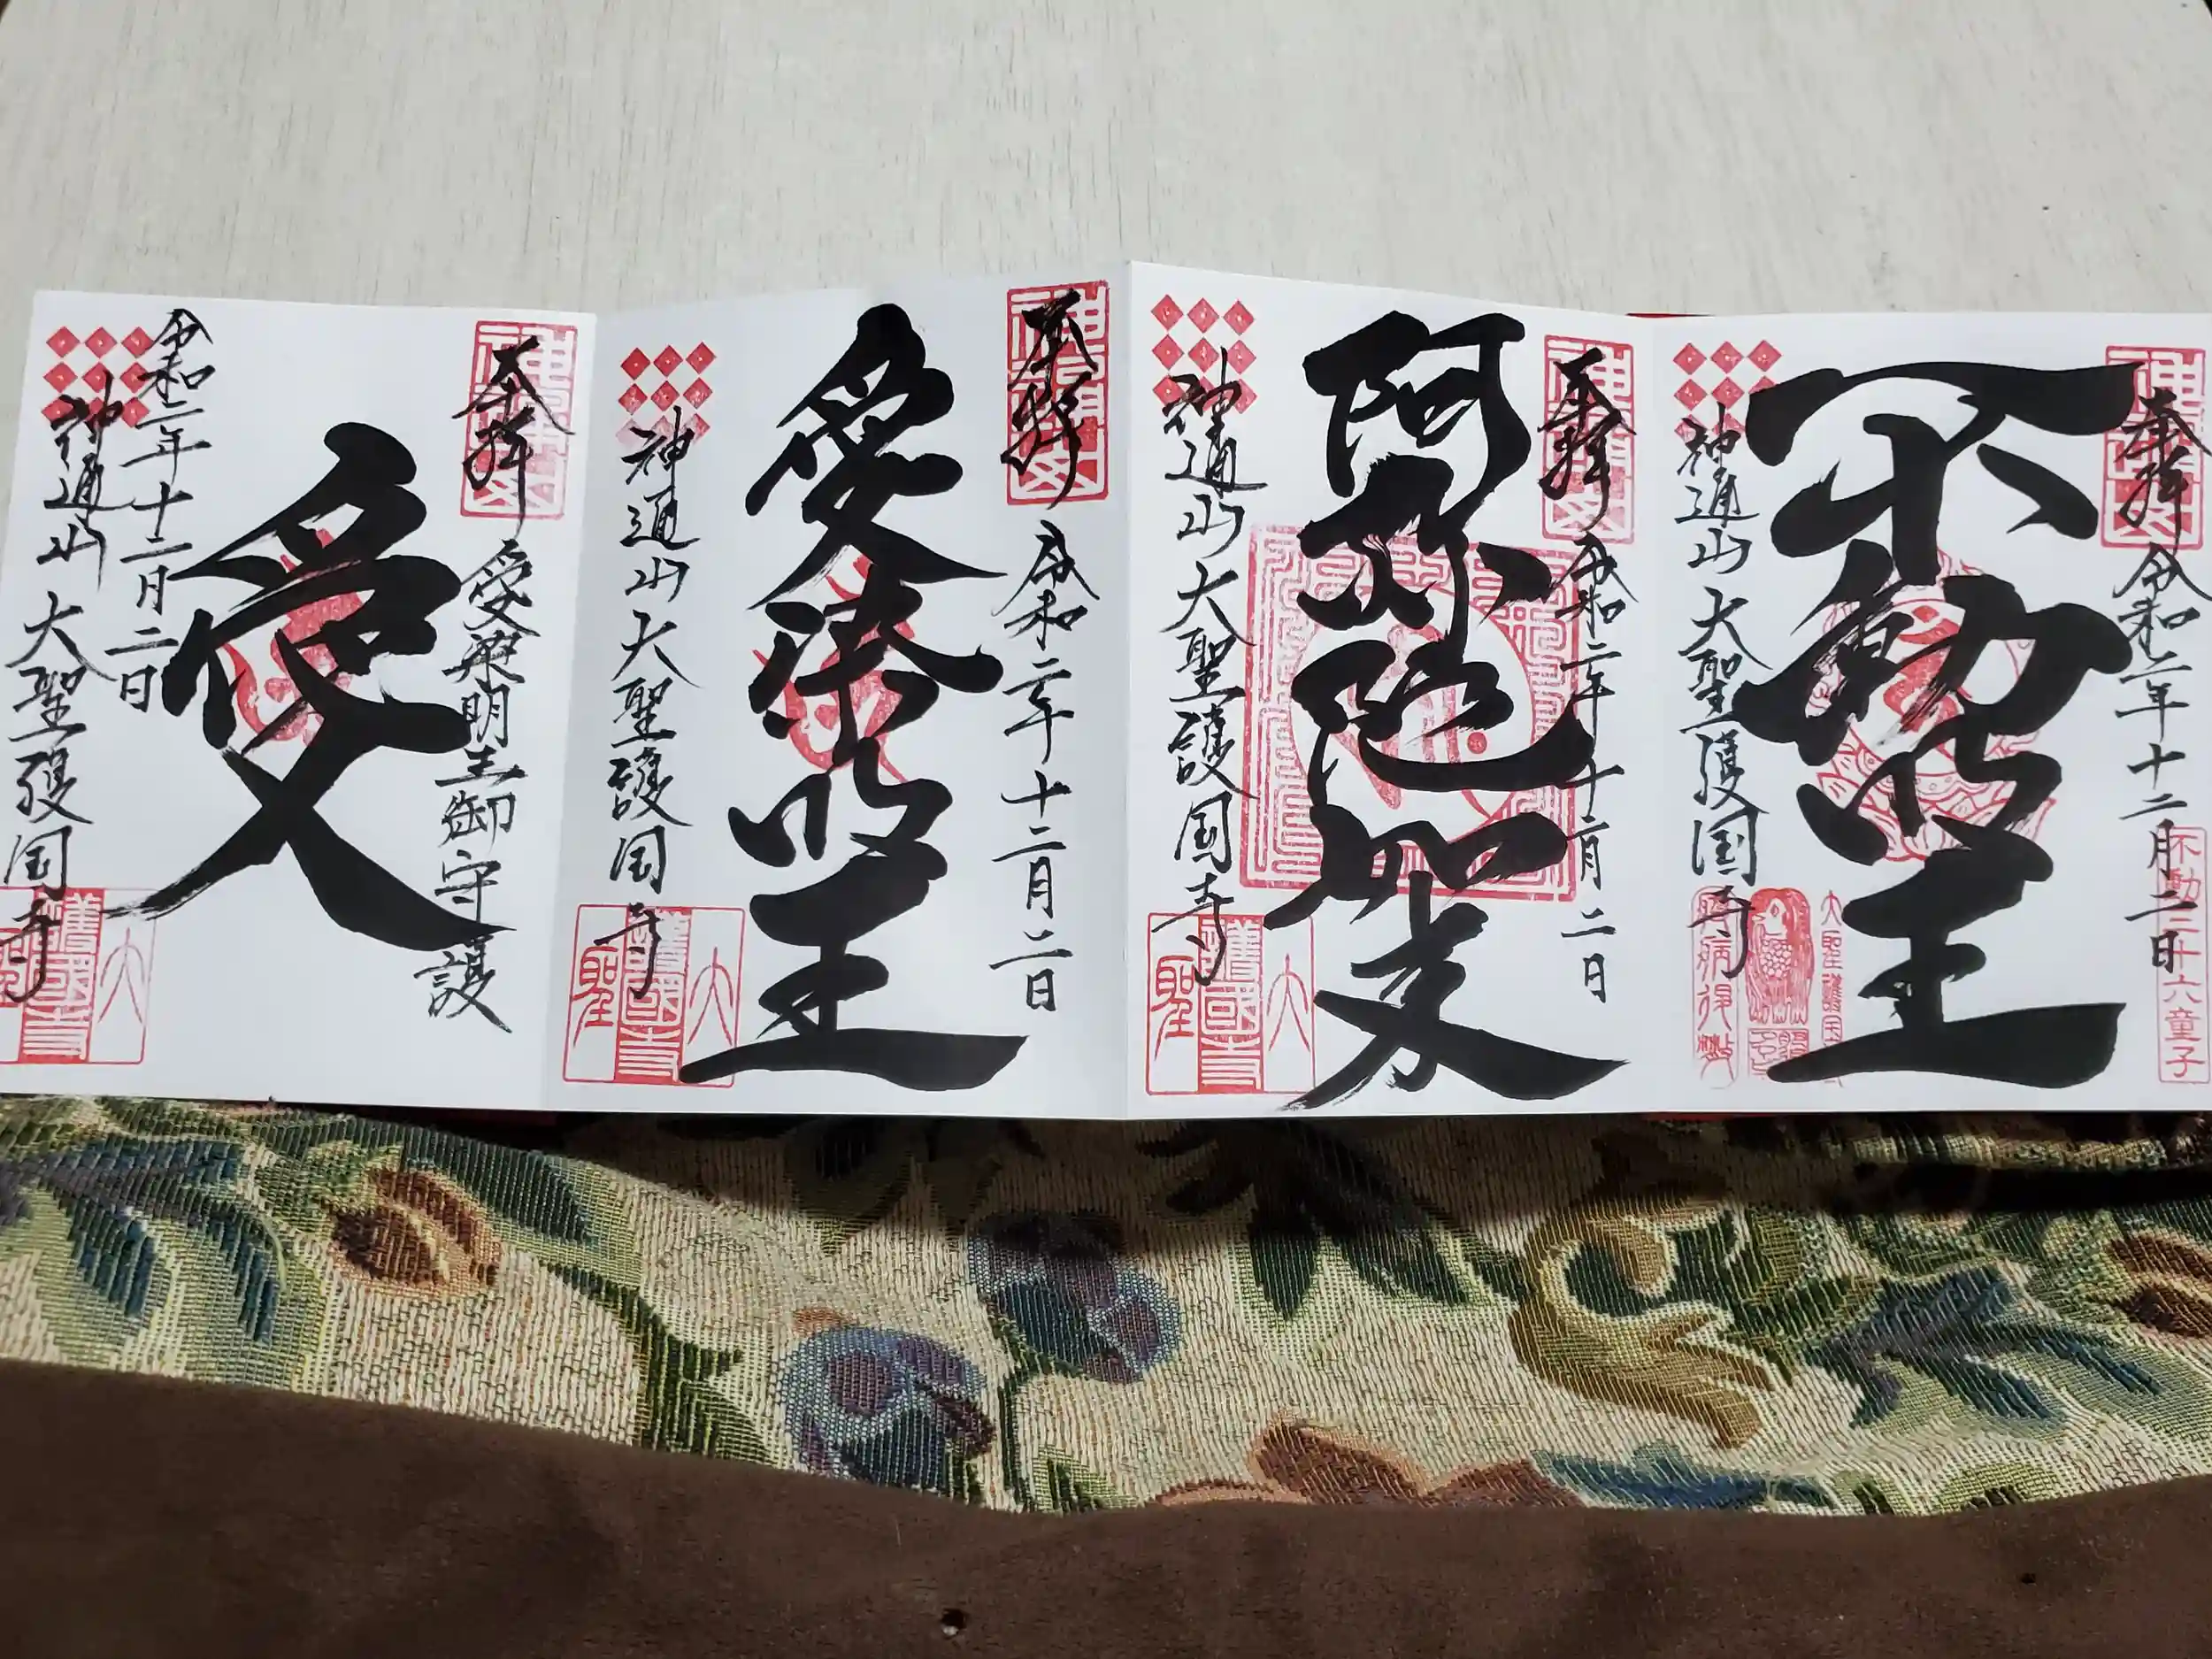 奉拝
令和二年十二月二日
不動明王
不動三十六童子
大聖護国寺
神通山 大聖護国寺
奉拝
令和二年十二月二日
阿弥陀如来
神通山 大聖護国寺
大聖護國寺
奉拝
令和二年十二月二日
愛染明王
神通山 大聖護国寺
大聖護國寺
奉拝
愛染明王御守護
愛
令和二年十二月二日
神通山 大聖護国寺
大聖護國寺